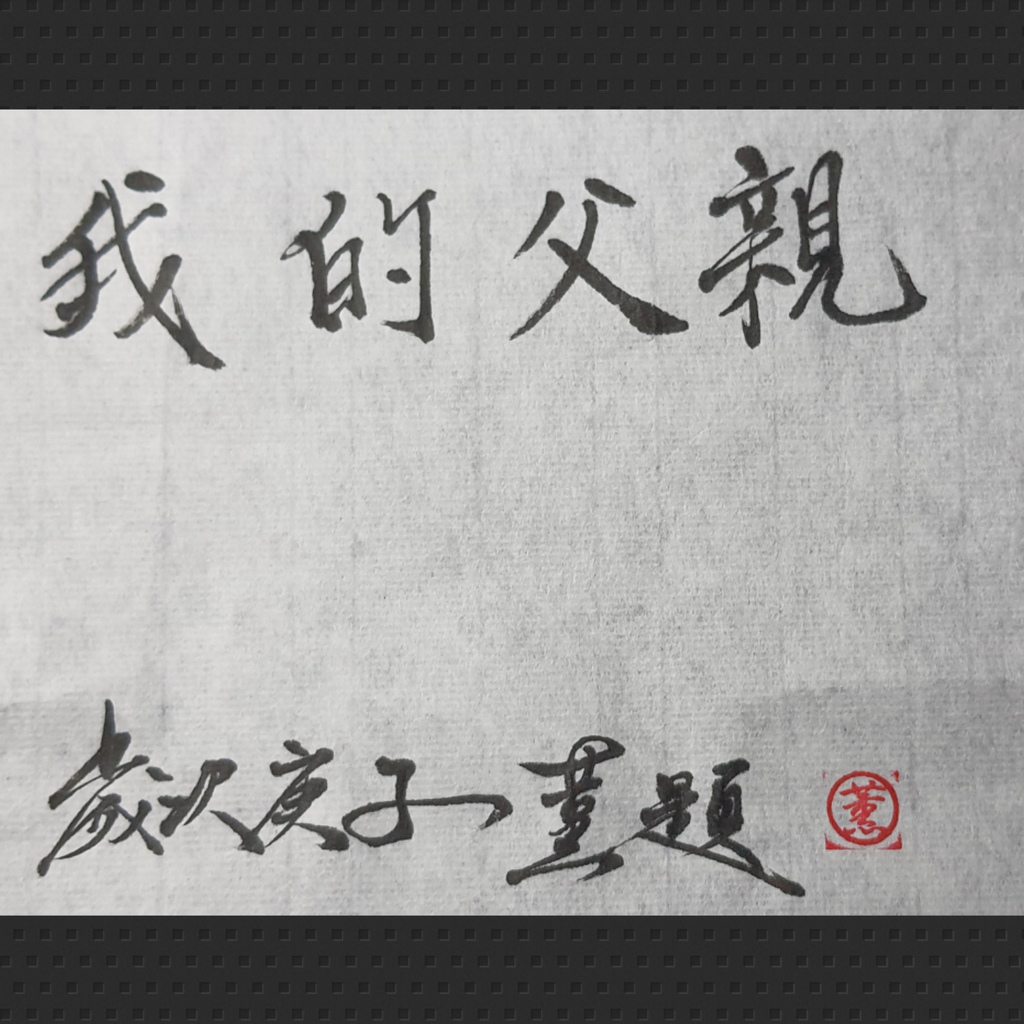 我的父親
歲次庚子 題